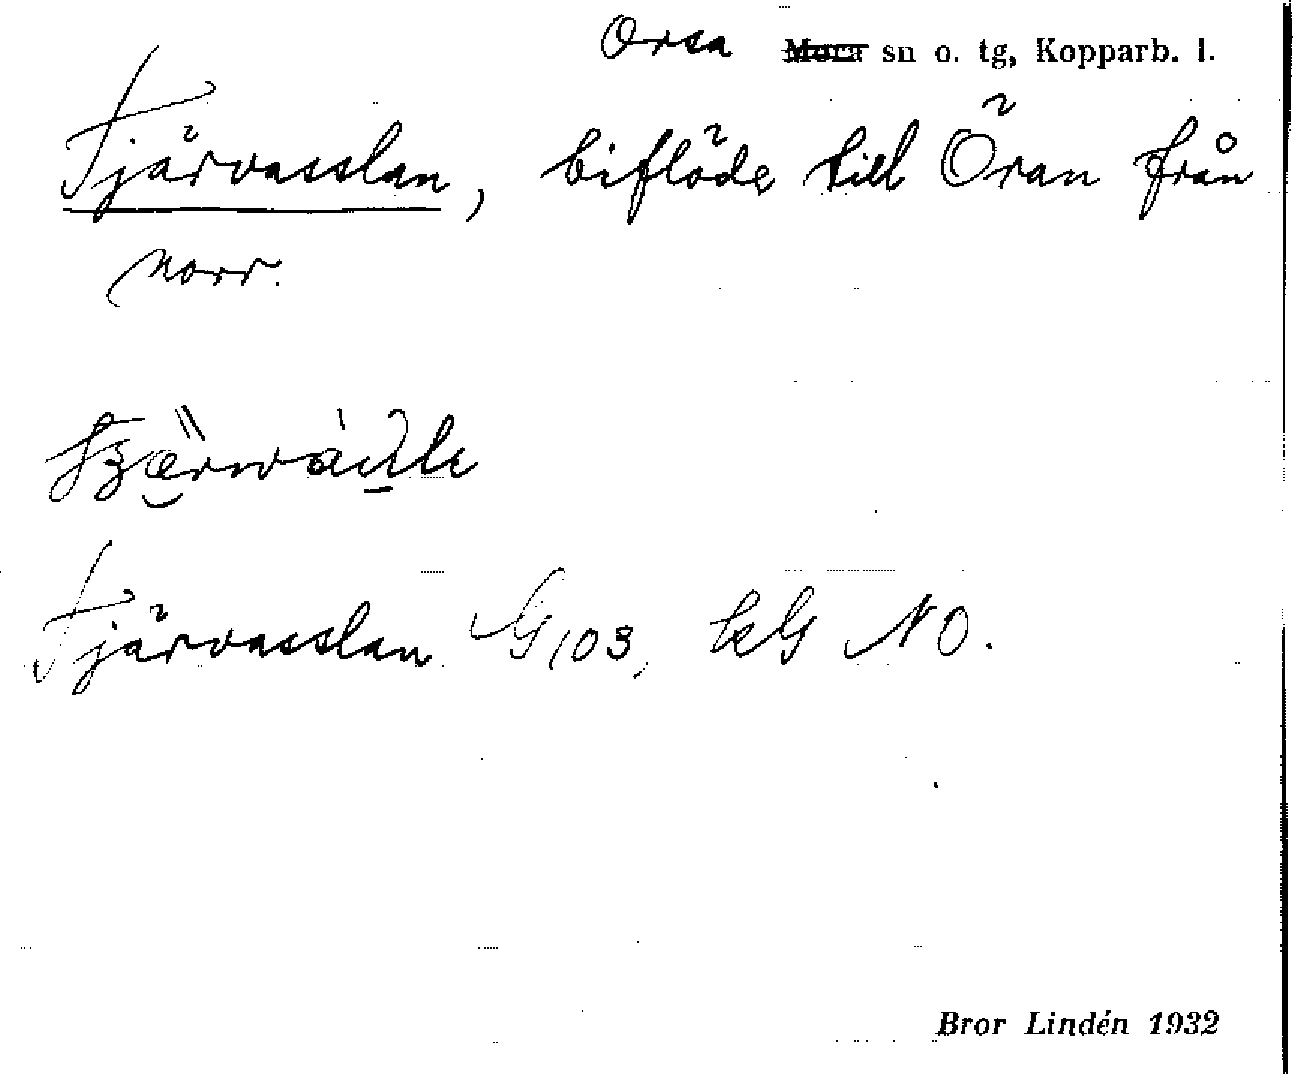 Orsa Mora sn o. tg, Kopparb. l.
Tjärvasslan, biflöde till Öran från
norr.
Tjärvasslan G 103, kG NO.
Bror Lindén 1932